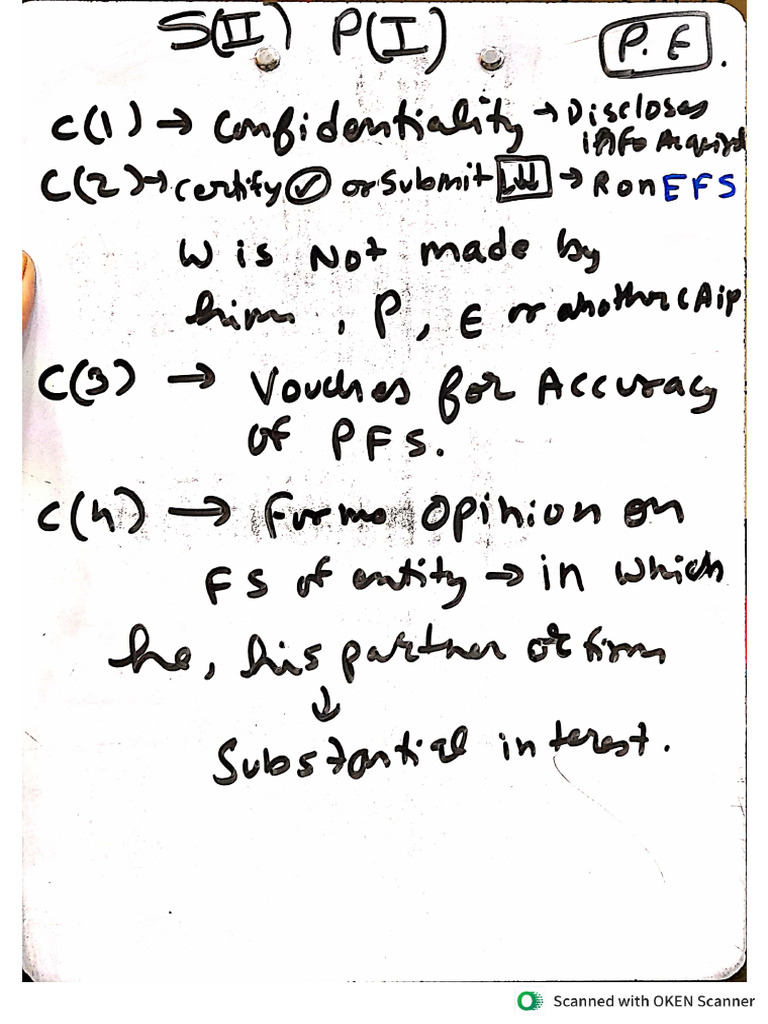 S(II) P(I) P.E.
C(1) → Confidentiality → Discloses
info Acquired
C(2) → Certify ✓ or Submit ↓↓ → R on EFS
W is Not made by
him, P, E or another CA ip
C(3) → Vouches for Accuracy
of PFS.
C(4) → Forms Opinion on
FS of entity → in which
he, his partner or firm
↓
Substantial interest.
Scanned with OKEN Scanner